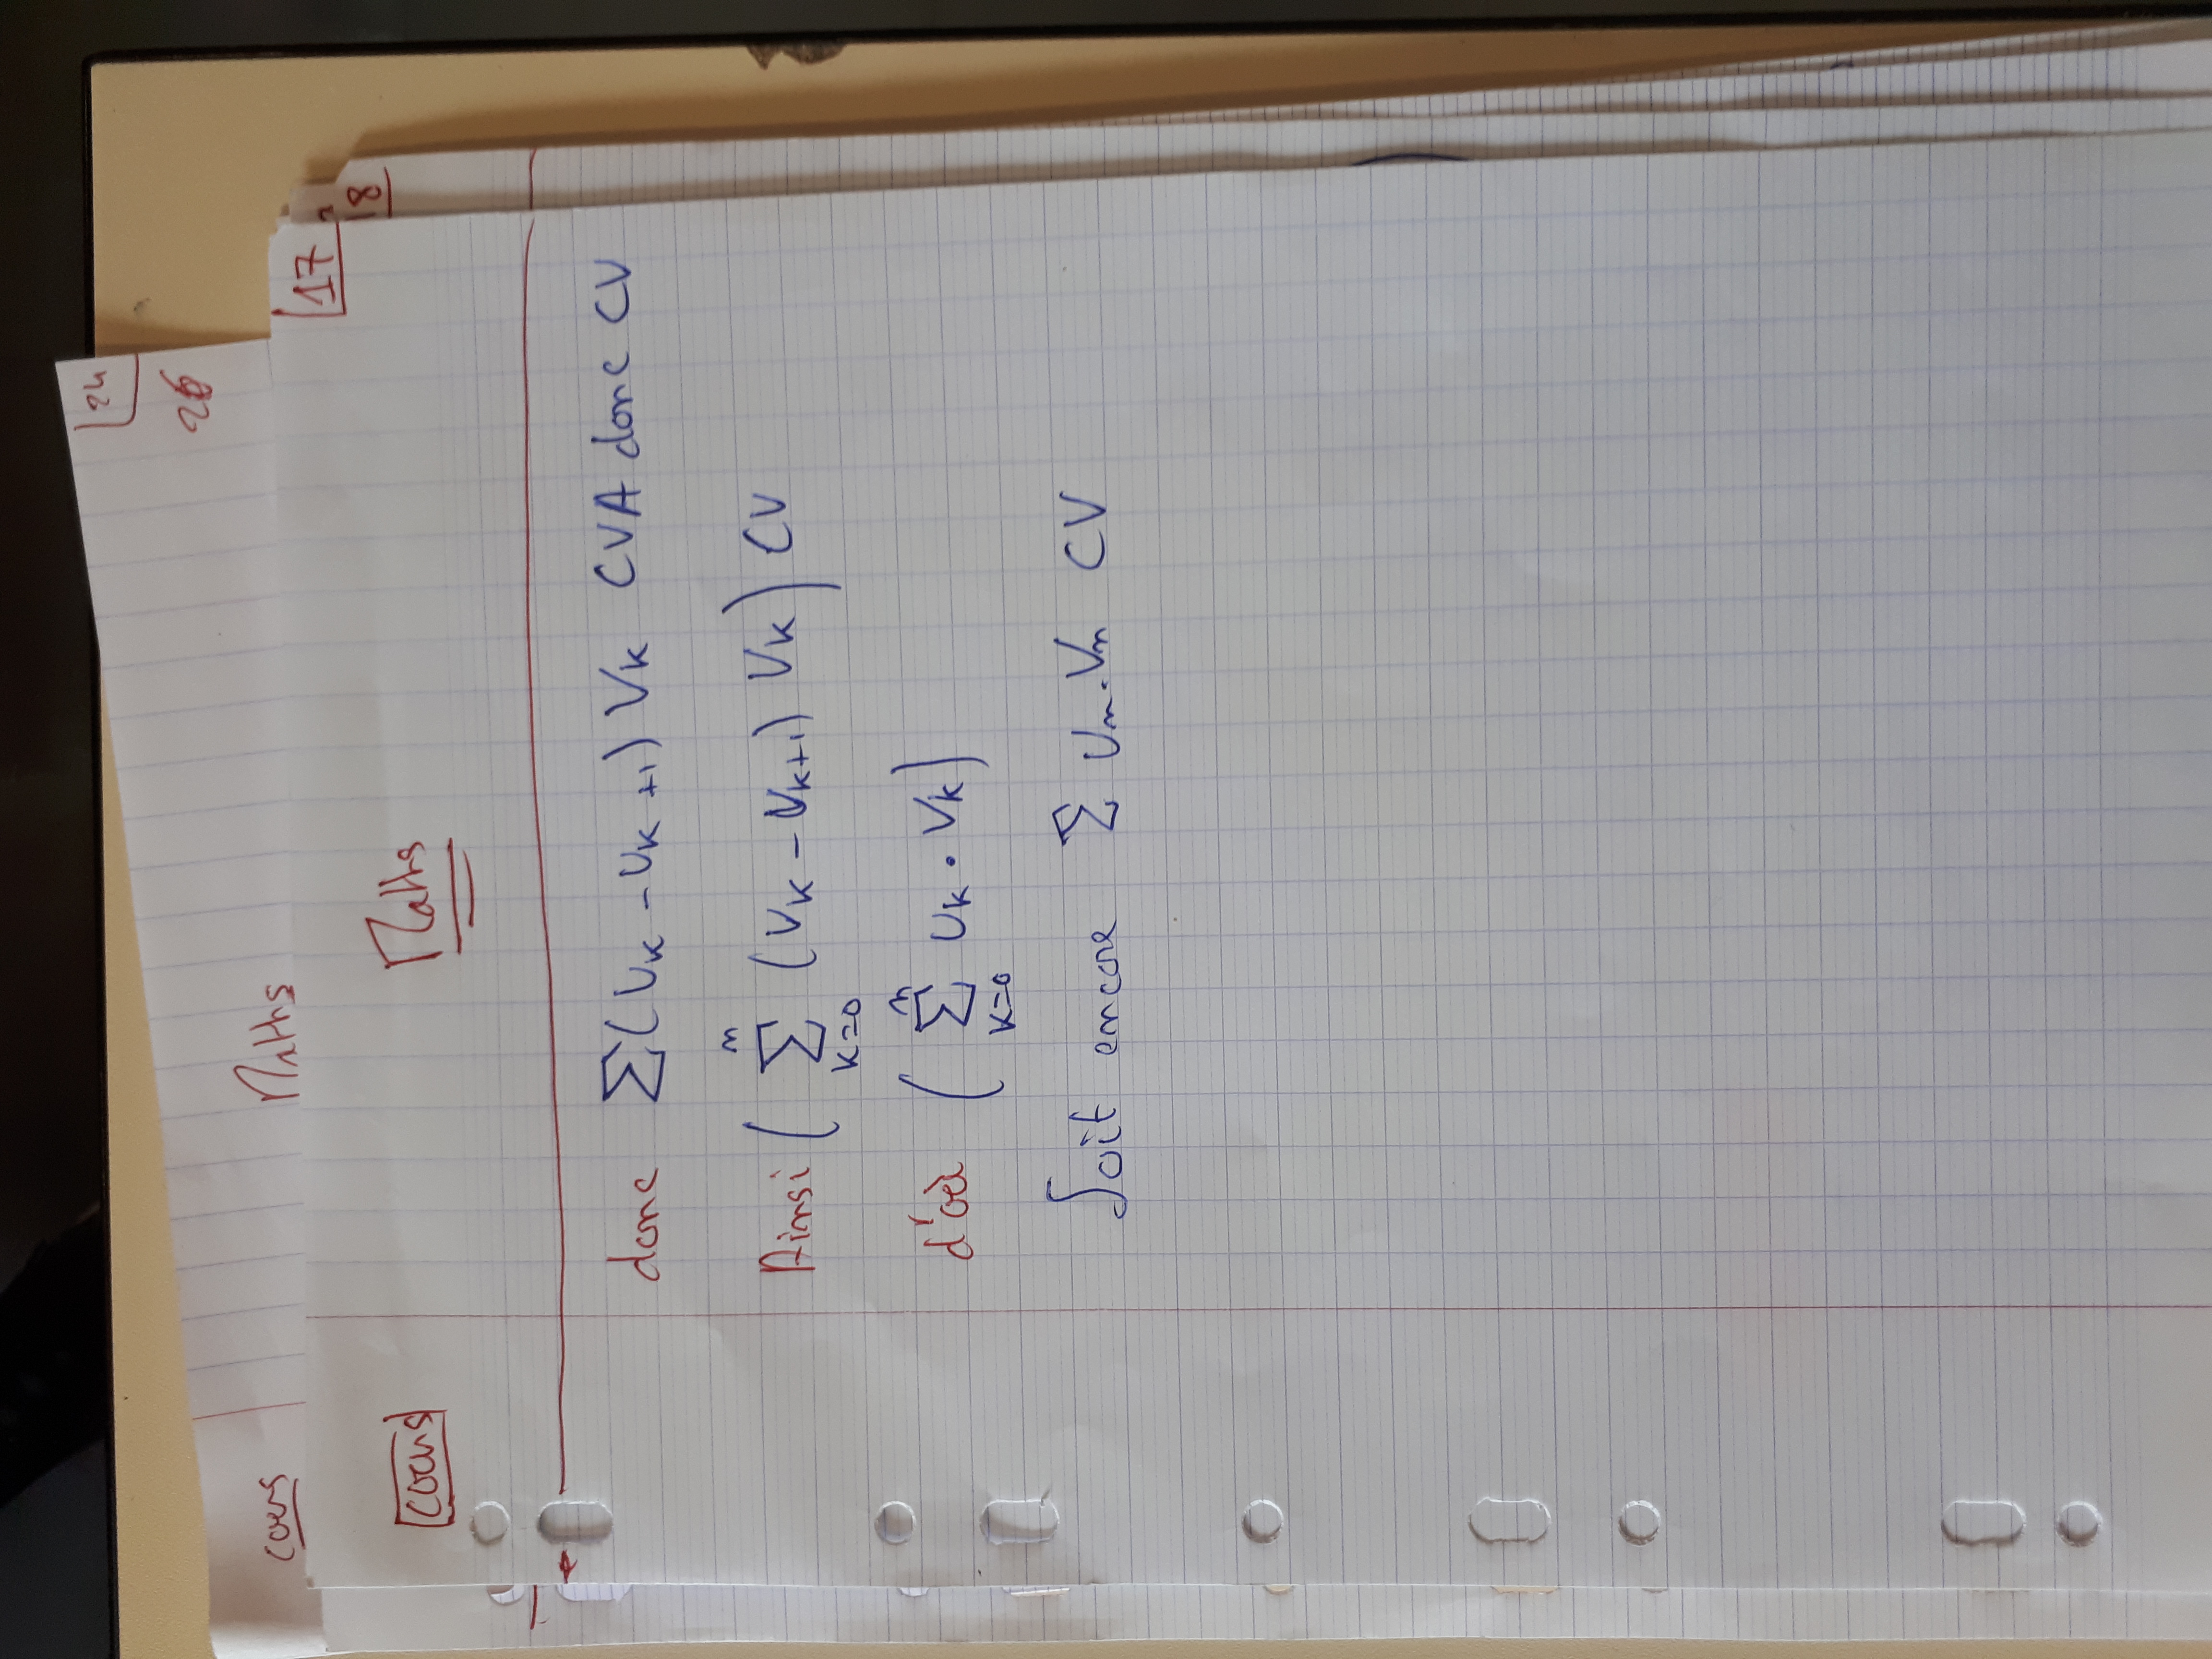 cours Maths 24
26
18
17
cours Maths
donc Σ(Uk - Uk+1) Vk CVA donc CV
Ainsi ( Σ k=0 n (Vk - Vk+1) Vk ) CV
d'où ( Σ k=0 n Uk · Vk )
Soit encore Σ Un · Vn CV